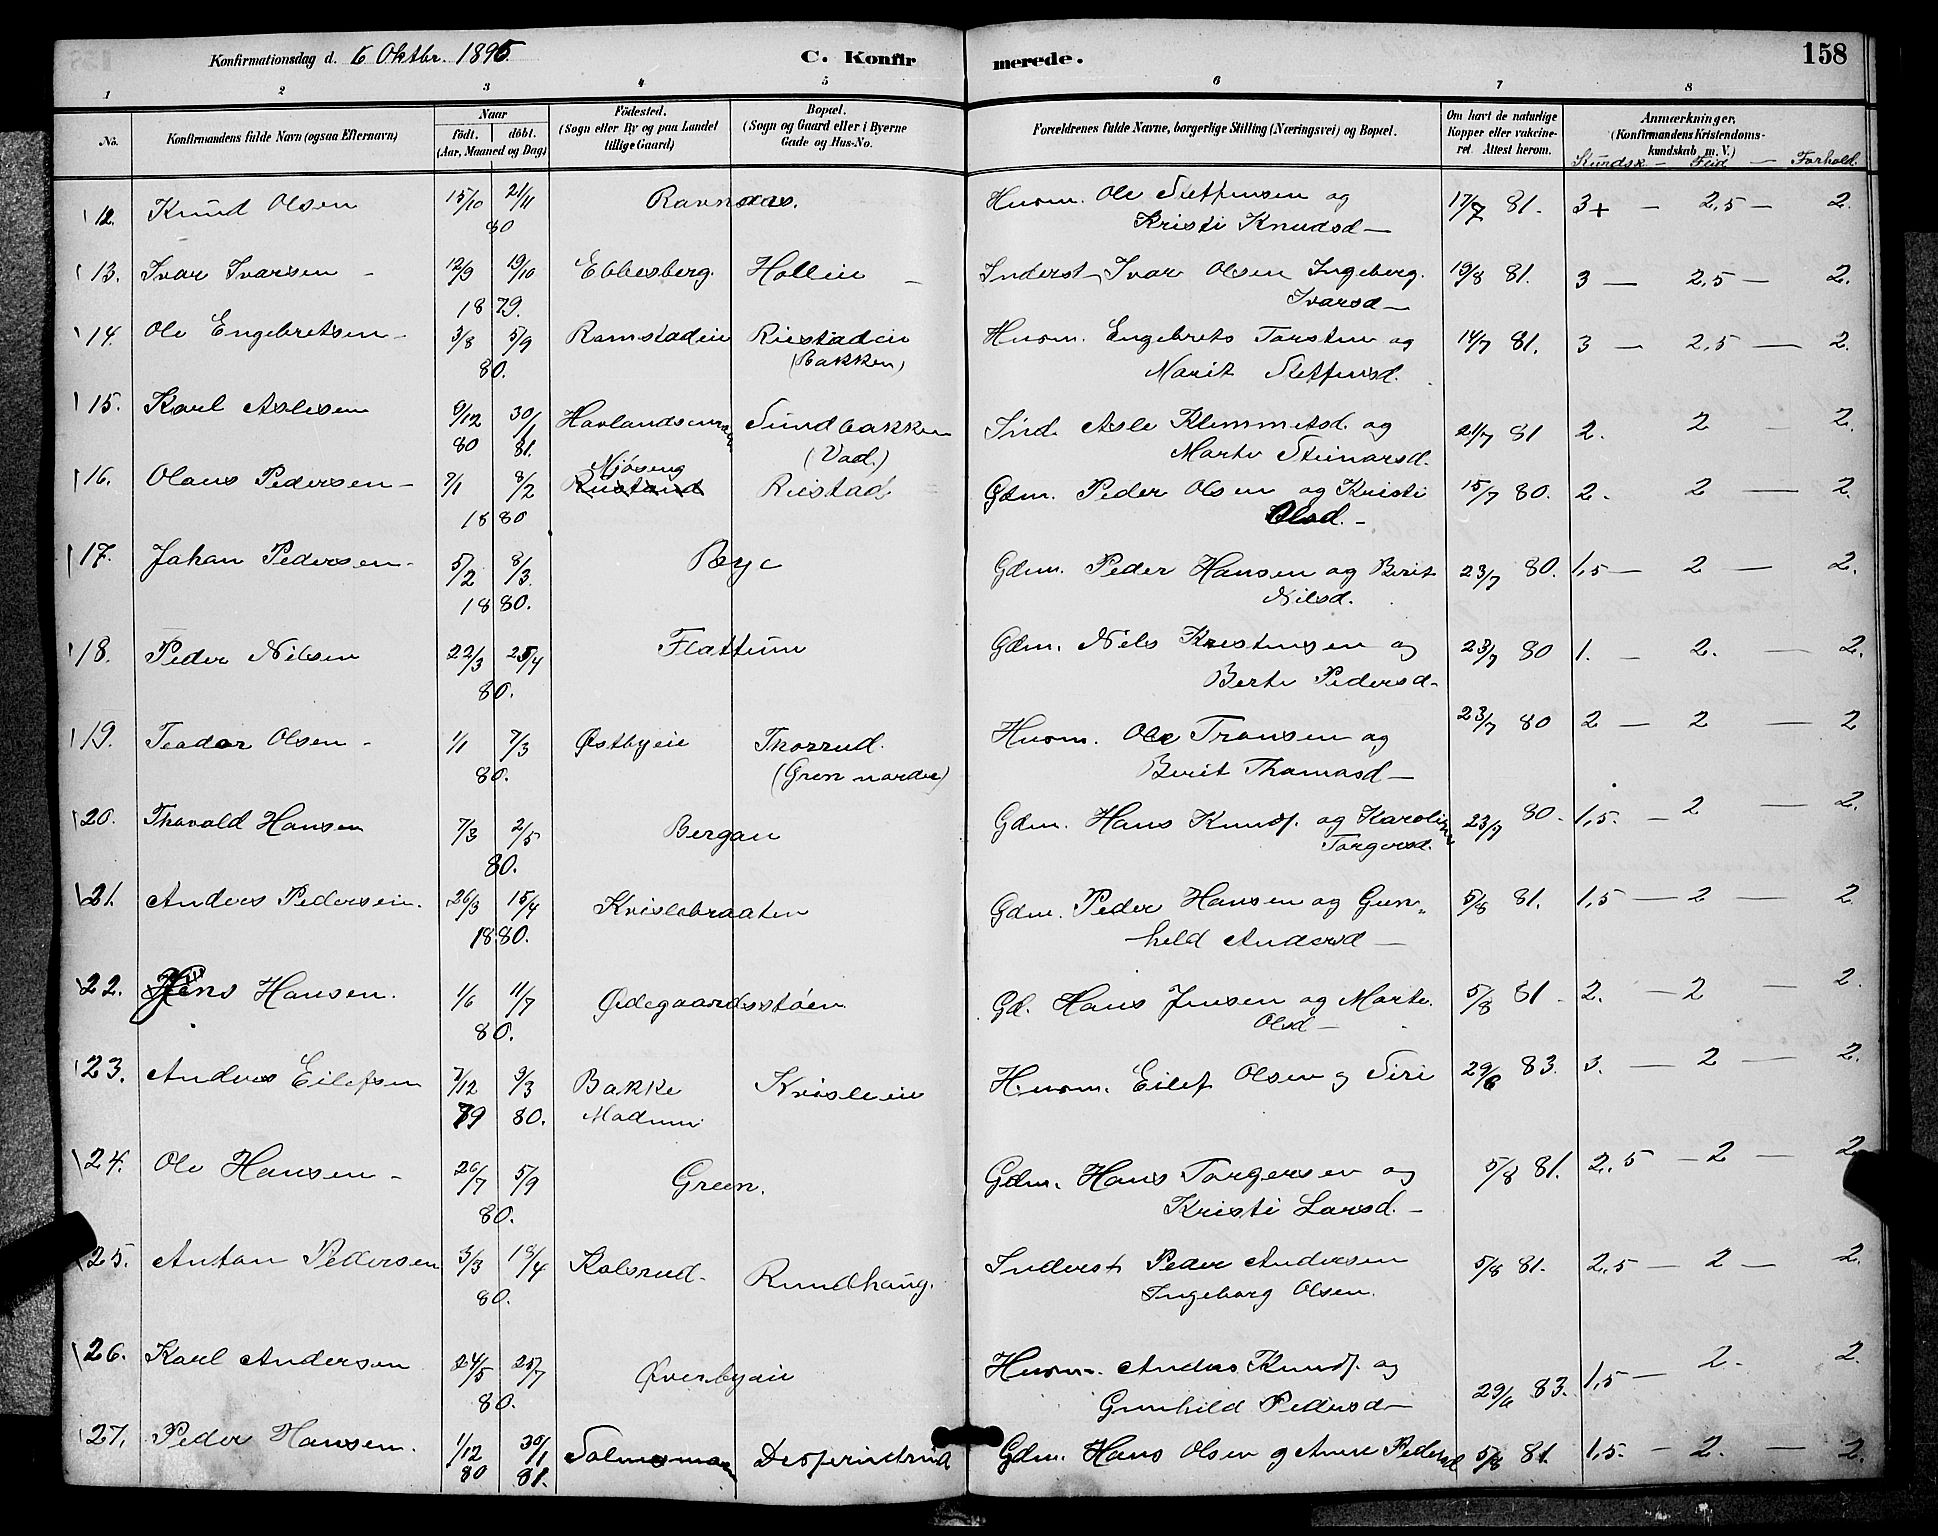 Konfirmationsdag d. 6 Oktbr. 1895. C. Konfirmerede. 158
1 2 3 4 5 6 7 8
No. Konfirmandens fulde Navn (ogsaa Efternavn) Naar født. døbt. (Aar, Maaned og Dag) Fødested. (Sogn eller By og paa Landet tillige Gaard) Bopæl. (Sogn og Gaard eller i Byerne Gade og Hus-No. Forældrenes fulde Navne, borgerlige Stilling (Næringsvei) og Bopæl. Om havt de naturlige Kopper eller vakcineret. Attest herom. Anmærkninger, (Konfirmandens Kristendomskundskab m. V.)
Kundsk. — Flid — Forhold.
12. Knud Olsen 15/10 21/11 Husm. Ole Steffensen og 17/7 81. 3+ — 2,5 — 2.
80 Kristi Knudsd —
13. Ivar Ivarsen - 12/9 19/10 Ebbesberg. Holleie — Inderst Ivar Olsen Ingeborg. 19/8 81. 3 — 2,5 — 2.
1879. Ivarsd —
14. Ole Engebretsen - 3/8 5/9 Ramstadeie Riestadeie Husm. Engebrets Torsten og 14/7 81. 3 — 2,5 — 2.
80. (Bakken) Marit Steffensd.
15. Karl Aslesen 9/12 30/1 Sundbakken Ind. Asle Klemmetsd. og 21/7 81 2. 2 — 2.
80 81. (Vad.) Marte Steinarsd.
16. Olaus Pedersen — 7/1 8/2 Mjøseng Riestad Gdm. Peder Olsen og Kristi 15/7 80. 2. 2 — 2.
1880 Olsd. —
17. Johan Pedersen - 5/2 8/3. Bye Gdm. Peder Hansen og Berit 23/7 80. 1,5 — 2 — 2.
1880. Nilsd.
18. Peder Nilsen 22/3 25/4 Flattum Gdm. Nils Kristensen og 23/7 80 1. — 2. — 2.
80. Berte Pedersd-
19. Teodor Olsen - 1/1 7/3 Østbyeie Thorrud. Husm. Ole Transen og 23/7 80 2 — 2 — 2
80. (Gren nordre) Berit Thomasd —
20. Thorvald Hansen 7/3 2/5 Bergan Gdm. Hans Knuds. og Karoline 23/7 80. 1,5. — 2 — 2.
80. Torgersd.
21. Anders Pedersen. 26/3 15/4 Krislebraaten Gdm. Peder Hansen og Gun„ 5/8 81. 1,5 — 2 — 2.
1880. hild Andersd —
22. Jens Hansen. 1/6 11/7 Ødegaardsstøen Gd. Hans Jensen og Marte. 5/8 81. 2. — 2 — 2.
80. Olsd —
23. Anders Eilefsen 7/12 9/3 Bakke Krisleeie Husm. Eilef Olsen og Siri 29/6 83. 3. — 2 — 2.
79 80. Modum
24. Ole Hansen - 26/7 5/9 Green. Gdm. Hans Torgersen og 5/8 81. 2,5 — 2 — 2.
80. Kristi Larsd. —
25. Anton Pedersen 3/3 18/4 Kolsrud- Rundhaug. Inderst Peder Andersen 5/8 81. 2,5 — 2 — 2.
80. Ingeborg Olsen.
26. Karl Andersen 24/5 25/7 Øverbyeie Husm. Anders Knuds. og 29/6 83. 1,5 — 2. 2.
80. Gunhild Pedersd —
27. Peder Hansen. 1/12 30/1 Gdm. Hans Olsen og Anne Pedersd 5/8 81. 1,5. — 2. — 2.
80 81.